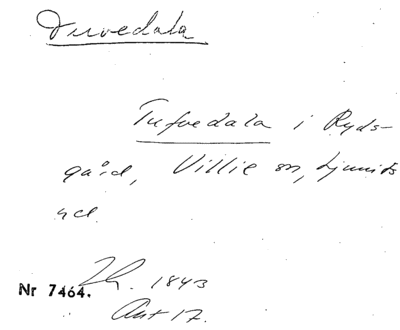 Tuvedala
Tufvedala i Ryds-
gård, Villie sn, Ljunits
hd.
1843
Nr 7464.
Ant 17.